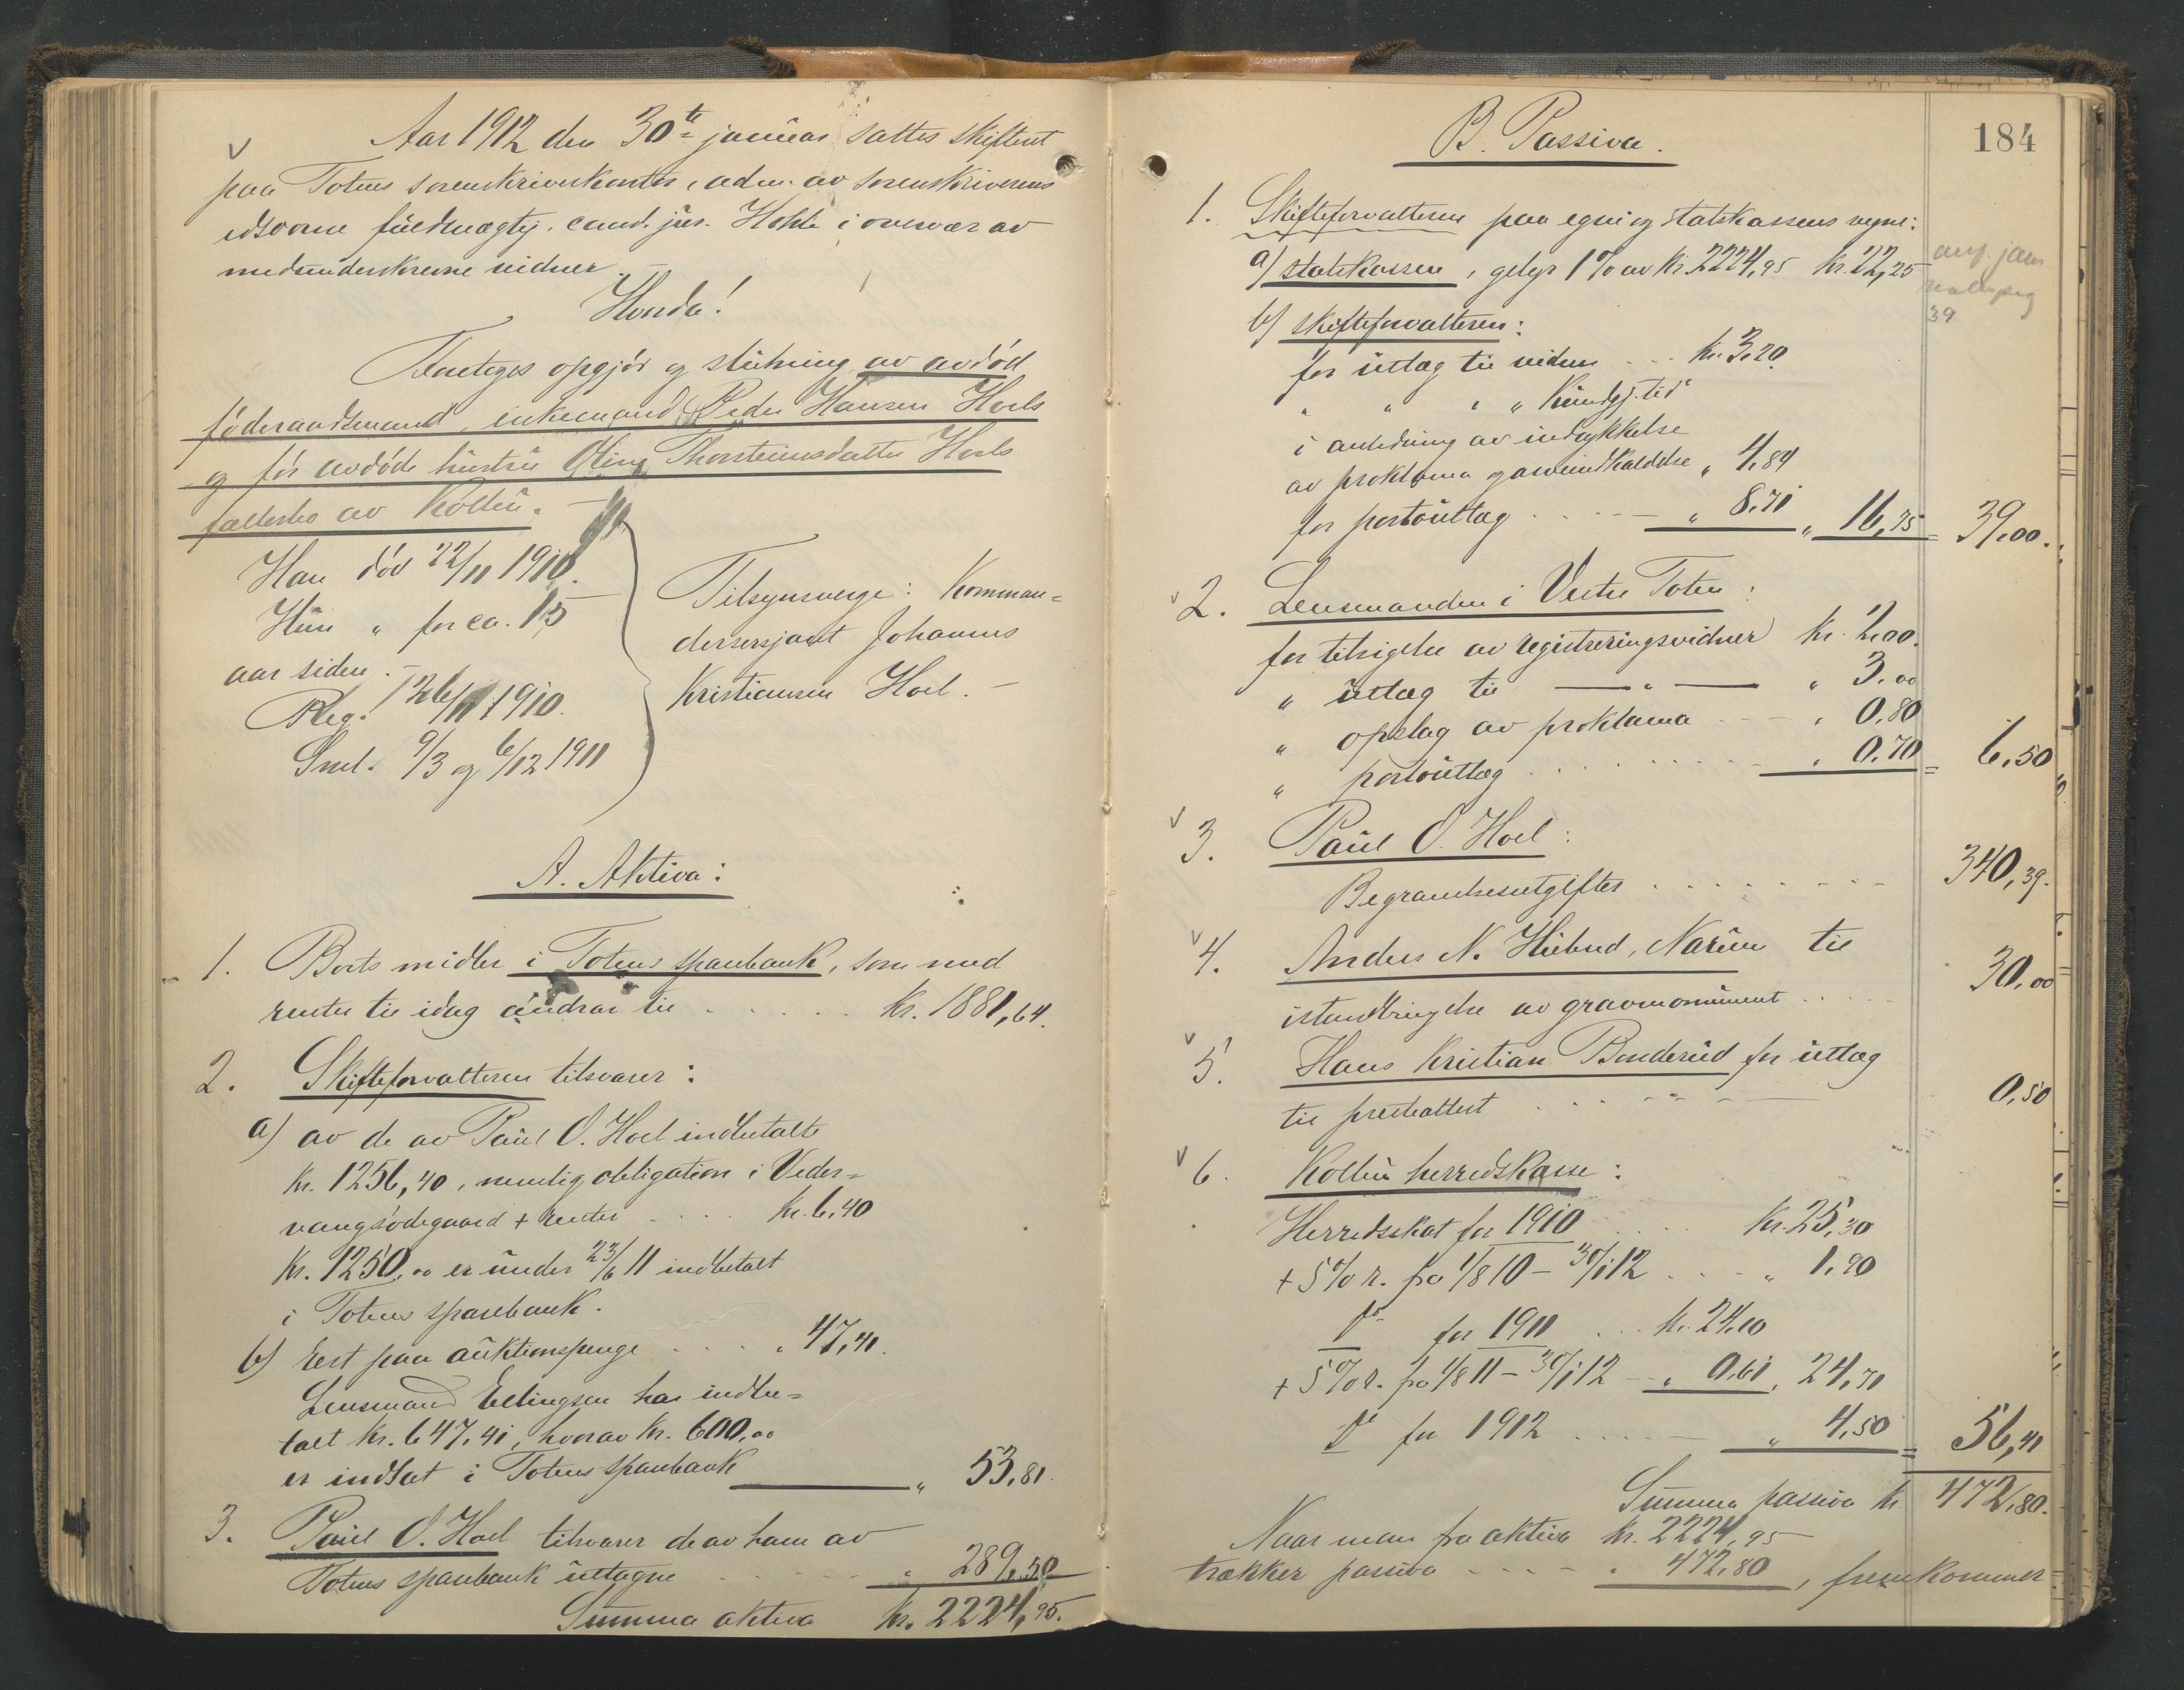 Aar 1912 den 30te januar sattes skifteret
paa Totens sorenskriverkontor, adm. av sorenskriverens
edsvorne fuldmægtig, cand. jur. Hohle i overvær av
medunderskrevne vidner. –
Hvorda!
Foretoges opgjør og slutning av avdød
føderaadsmand, enkemand Peder Hansen Hoels
og før avdøde hustru Oline Thorsteinsdatter Hoels
fællesbo av Kolbu. –
Han død 22/11 1910.
Hun " for ca. 15
aar siden. –
Reg. 26/11 1910.
Sml. 9/3 og 6/12 1911
Tilsynsverge: Komman=
dersersjant Johannes
Kristiansen Hoel. –
A. Aktiva:
1. Boets midler i Totens sparebank, som med
renter til idag andrar til . . . . . . kr. 1881,64.
2. Skifteforvalteren tilsvarer:
a) av de av Paul O. Hoel indbetalte
kr. 1256,40, nemlig obligation i Veder=
vangsødegaard + renter . . . . kr. 6,40
kr. 1250,00 er under 23/6 11 indbetalt
i Totens sparebank.
b) rest paa auktionspenge . . . . " 47,41.
Lensmand Ellingsen har indbe=
talt kr. 647,41, hvorav kr. 600,00
er indsat i Totens sparebank " 53,81.
3. Paul O. Hoel tilsvarer de av ham av
Totens sparebank uttagne . . . . " 289,50
Summa aktiva kr. 2224,95.
184
B. Passiva.
1. Skifteforvalteren paa egne og statskassens vegne:
a) statskassen, gebyr 1% av kr. 2224,95 kr. 22,25
39
b) skifteforvalteren:
for utlæg til vidner . . . kr. 3,20
" " " " Kundgj. tid
i anledning av indrykkelse
av proklama og arveindkaldelse " 4,84
for portoutlæg . . . . . " 8,71 " 16,75 = 39,00.
2. Lensmanden i Vestre Toten:
for tilsigelse av registreringsvidner kr. 2,00.
" utlæg til — " — " 3,00
" opslag av proklama . . . " 0,80
" portoutlæg . . . . . . . " 0,70 = 6,50
3. Paul O. Hoel:
Begravelsesutgifter . . . . . . . . 340,39.
4. Anders N. Hubred, Narum til
istandbringelse av gravmonument . . . . 30,00
5. Hans Kristian Bonderud for utlæg
til presteattest . . . . . . . 0,50
6. Kolbu herredskasse:
Herredsskat for 1910 . . . . kr. 25,30
+ 5% r. fra 1/8 10 – 30/1 12 . . . . " 1,90
Do for 1911 . . . kr. 24,10
+ 5% r. fra 1/8 11 – 30/1 12 – " 0,61 " 24,71
Do for 1912 . . . . . " 4,50 = 56,41
Summa passiva kr. 472,80.
Naar man fra aktiva kr. 2224,95
trækker passiva . . . . " 472,80, fremkommer